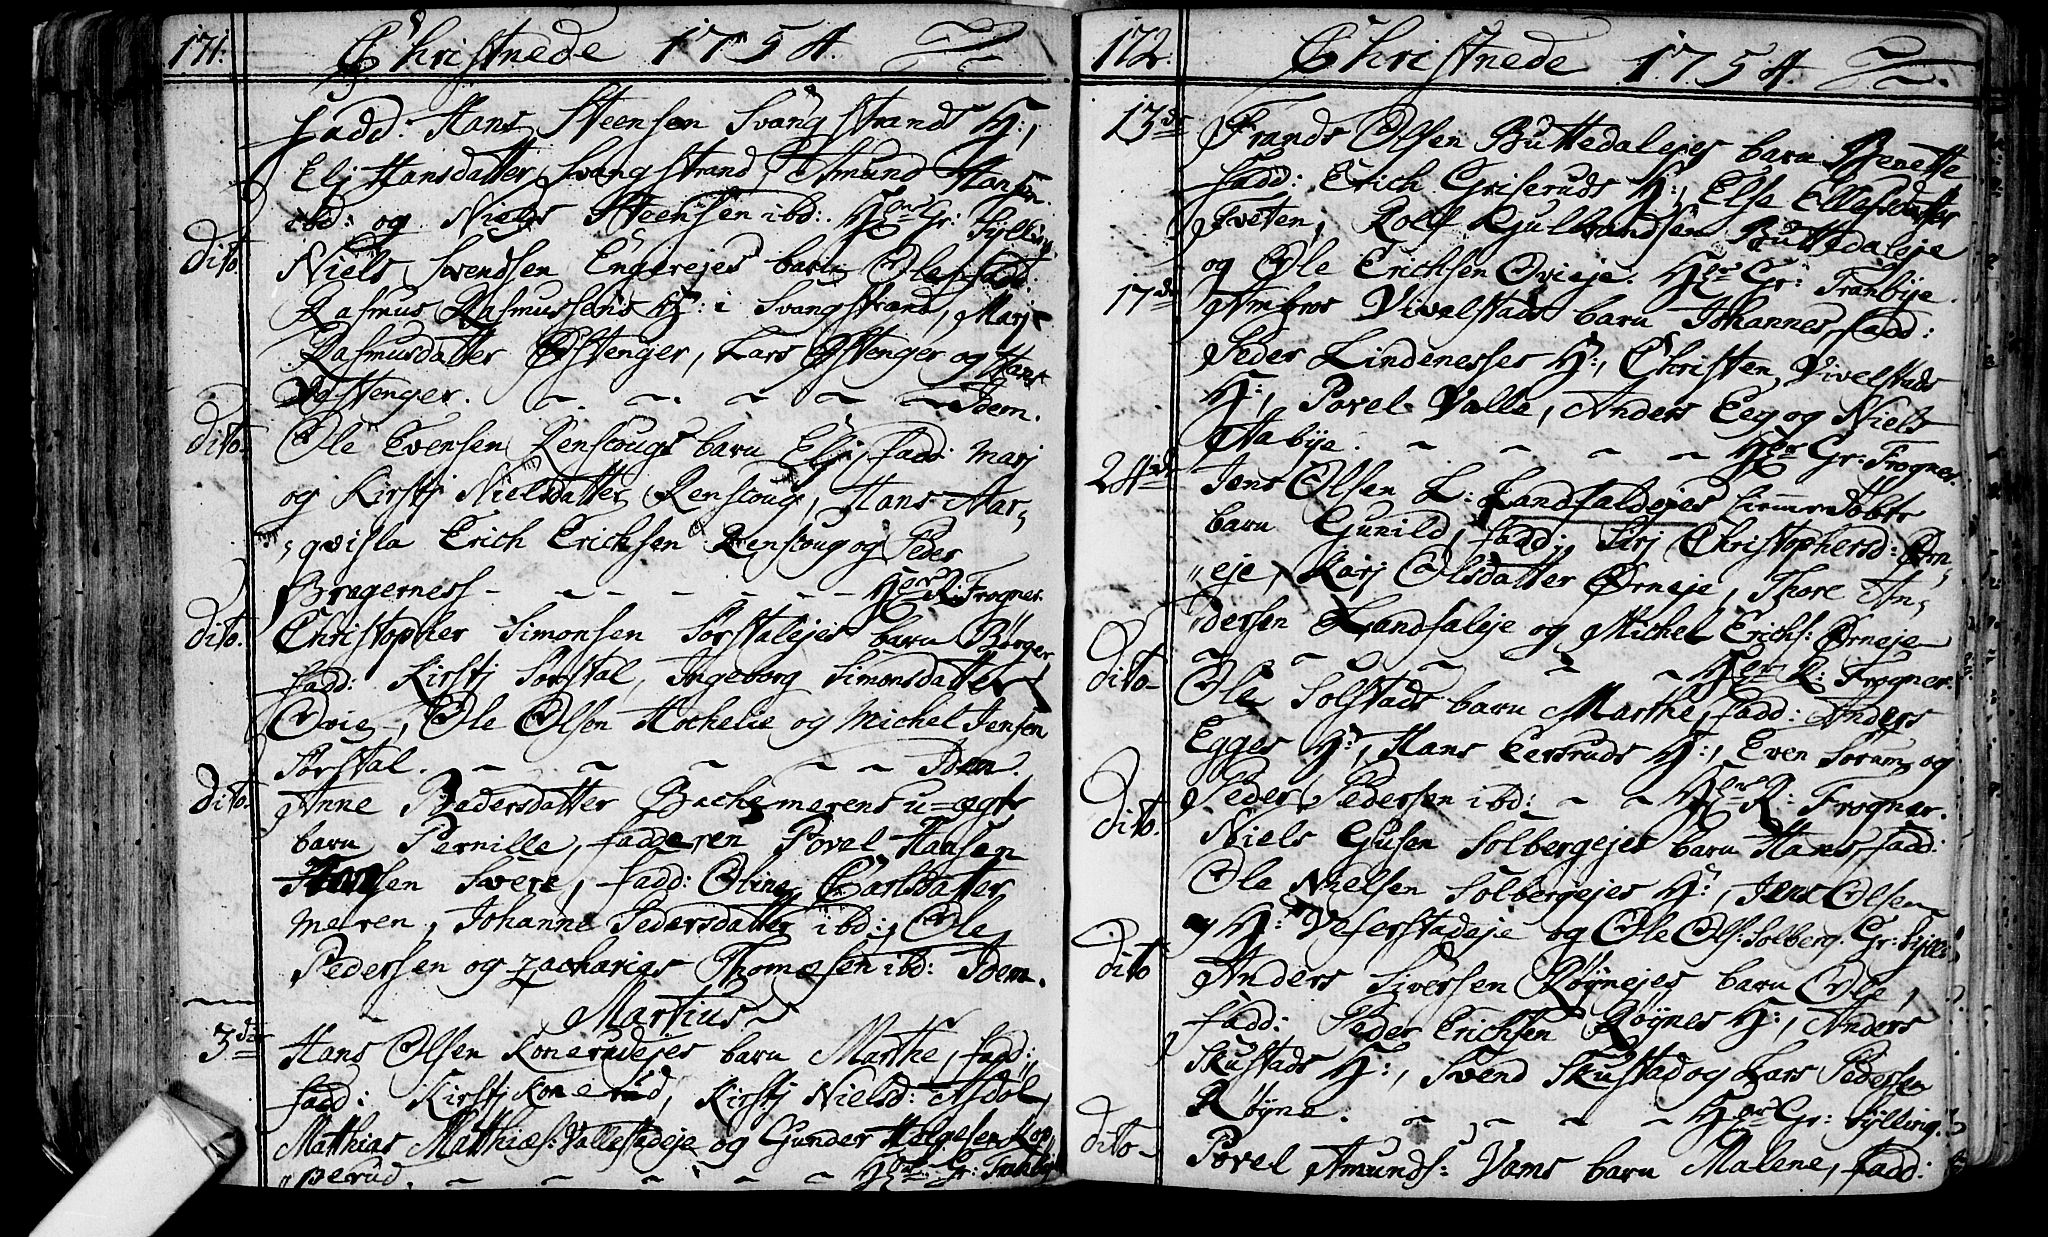 171. Christnede 1754.
fadd: Hans Steensen Svangstrands H:,
Elj Hansdatter Svangstrand, Amund Hansen
ibd: og Niels Steensen ibd: Hr Gr: Sylling
dito Niels Svendsen Engerejes barn Ole fadd:
Rasmus Rasmussens H: i Svangstrand, Marj
Rasmusdatter Østenger, Lars Østenger og Hans
Østenger. Idem.
dito. Ole Evensen Renscougs barn Elj, fadd: Marj
og Kirstj Nielsdatter Renscoug, Hans Aar,
,qvisla Erich Erichsen Renscoug og Peder
Bragerness - Hr R: Frogner.
dito. Christopher Simonsen Sørstalejes barn Børger
fadd: Kirstj Sørstal, Ingeborg Simonsdatter
Ovie, Ole Olsen Hochelie og Michel Jensen
Sørstal. Idem.
dito. Anne Pedersdatter Bachemerens u-ægte
barn Pernille, fadderen Povel Hansen
Svere, fadd: Oline Carlsdatter
meren, Johanne Pedersdatter ibd:, Ole
Pedersen og Zacharias Thomæsen ibd: Idem.
Martius
3de Hans Olsen Konerudejes barn Marthe, fadd:
fadd: Kirstj Konerud, Kirstj Nielsd: Asdøl,
Mathias Matthiæs: Vallestadeje og Gunder Helgesen Kop,
,perud. Hr Gr: Tranbye
172. Christnede 1754.
13de Frands Olsen Buttedalejes barn Benette
fadd: Erich Griseruds H:, Else Ellefsdatter
Tveten, Rolf Gulbrandsen Buttedaleje
og Ole Erichsen Ovieje. Hr Gr: Tranbye.
17de Ambros Vivelstads barn Johannes, fadd:
Peder Lindenesses H:, Christen Vivelstads
H:, Povel Valle, Anders Eeg og Niels
Aabye. Hr Gr: Frogner.
24de Jens Olsen L: Landfaldejes hiemmedøbte
barn Gunild, fadd: Sirj Christophersd: Ørn,
,eje, Karj Olsdatter Ørneje, Thore An,
,dersen Landfaleje og Michel Erichs: Ørneje
Hr R: Frogner.
dito- Ole Solstads barn Marthe, fadd: Anders
Egges H:, Hans Eersruds H:, Even Soram og
Peder Pedersen ibd: Hr R: Frogner.
dito. Niels Gusen Solbergejes barn Hans, fadd:
Ole Nielsen Solbergejes H:, Jens Olsen
og H: Veserstadeje og Ole Ols: Solberg. Gr: Sylli:
dito Anders Siversen Røynejes barn Ole,
fadd: Peder Erichsen Røynes H:, Anders
Skustads H:, Svend Skustad og Lars Pedersen
Røyne. Hr Gr: Sylling.
dito- Povel Amunds: Vams barn Malene, fadd: